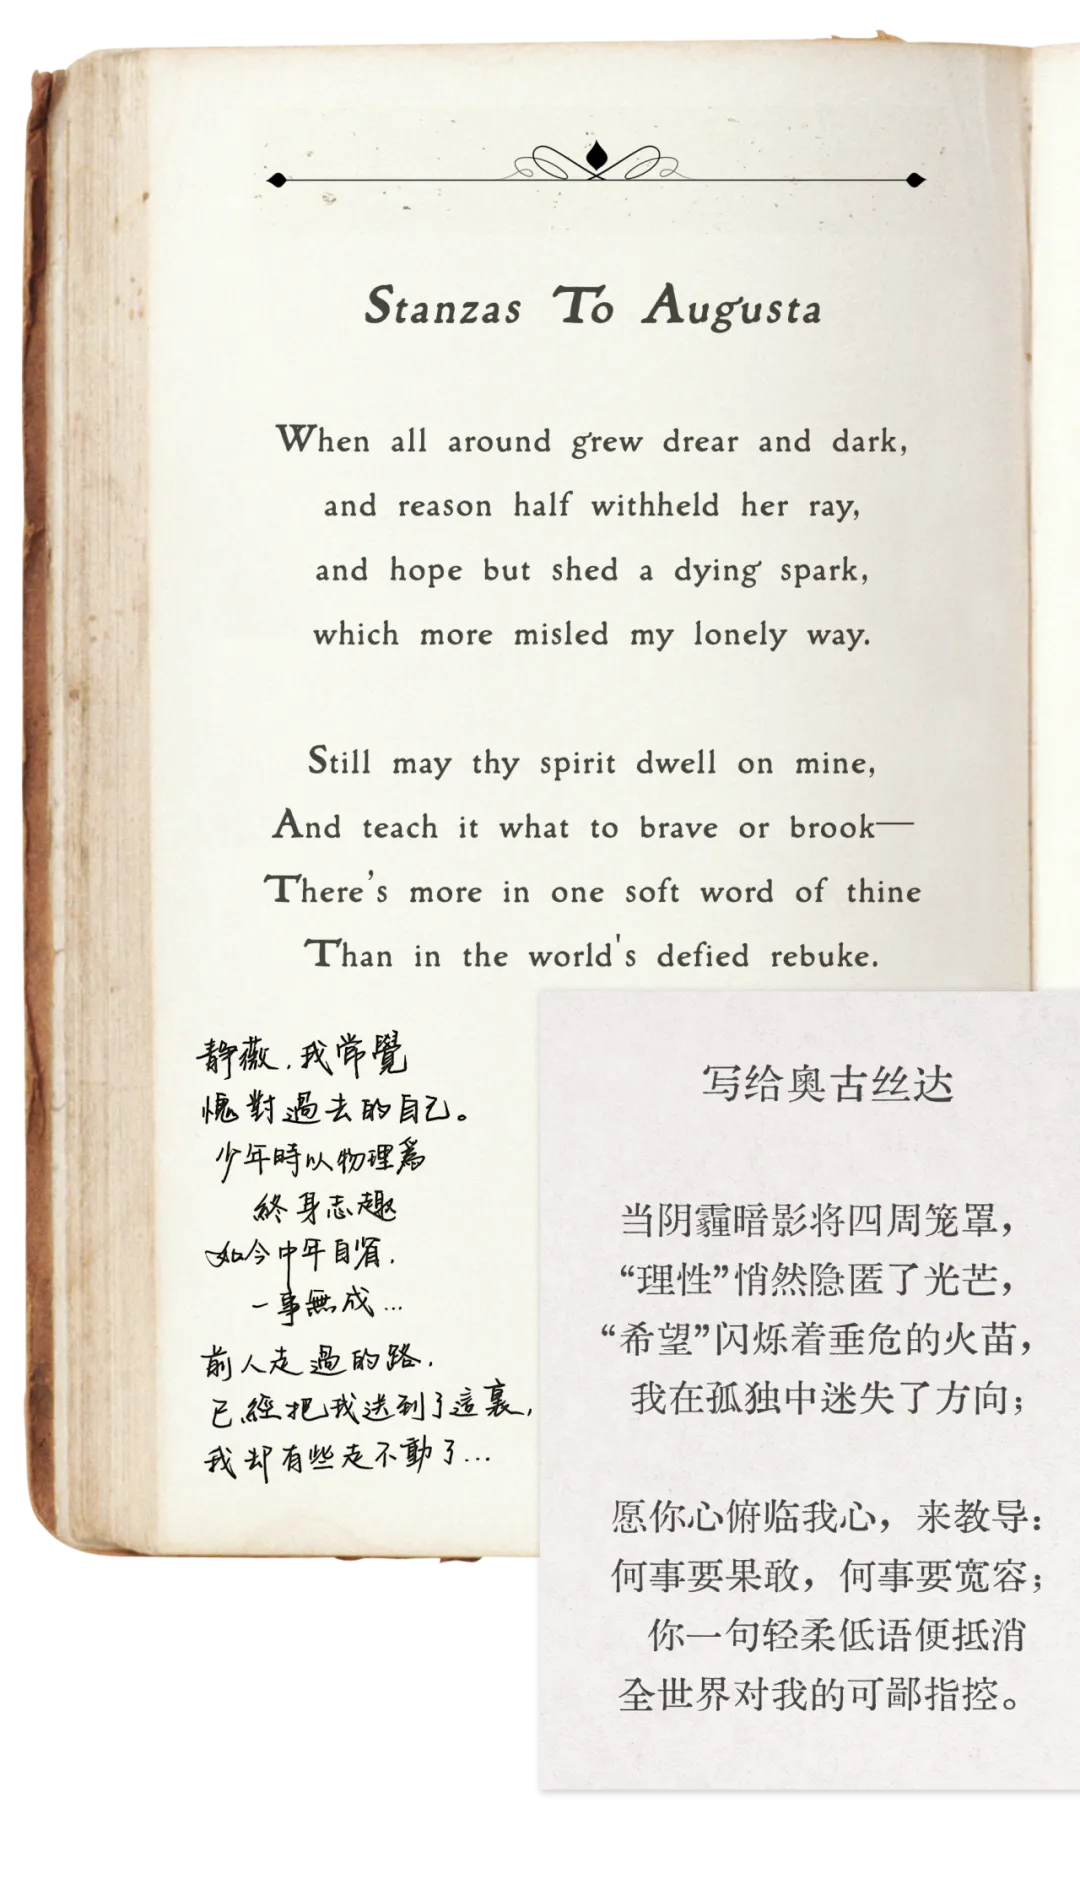 Stanzas To Augusta
When all around grew drear and dark,
and reason half withheld her ray,
and hope but shed a dying spark,
which more misled my lonely way.
Still may thy spirit dwell on mine,
And teach it what to brave or brook—
There's more in one soft word of thine
Than in the world's defied rebuke.
静薇，我常覺
愧對過去的自己。
少年時以物理爲
終身志趣
如今中年自省，
一事無成…
前人走過的路，
已經把我送到了這裏，
我却有些走不動了…
写给奥古丝达
当阴霾暗影将四周笼罩，
“理性”悄然隐匿了光芒，
“希望”闪烁着垂危的火苗，
我在孤独中迷失了方向；
愿你心俯临我心，来教导：
何事要果敢，何事要宽容；
你一句轻柔低语便抵消
全世界对我的可鄙指控。